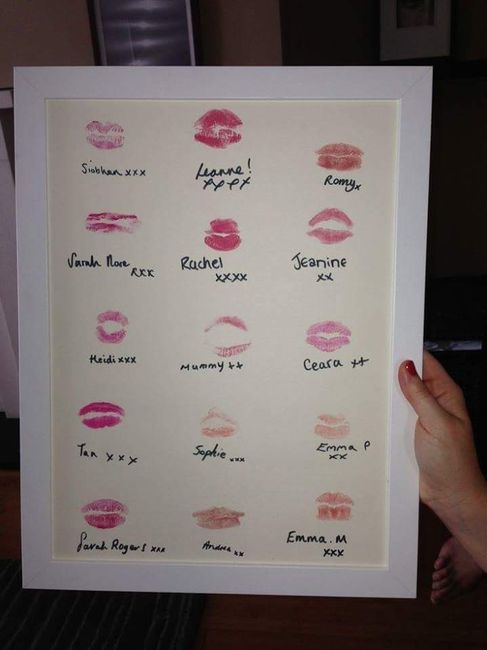 Siobhan xxx
Leanne!
xxxx
Romy x
Sarah
xxx
Rachel
xxxx
Jeanine
xx
Heidi xxx
Mummy ++
Ceara ++
Tan xxx
Sophie xxx
Emma P
xx
Sarah Rogers xxx
Andrea xx
Emma.M
xxx